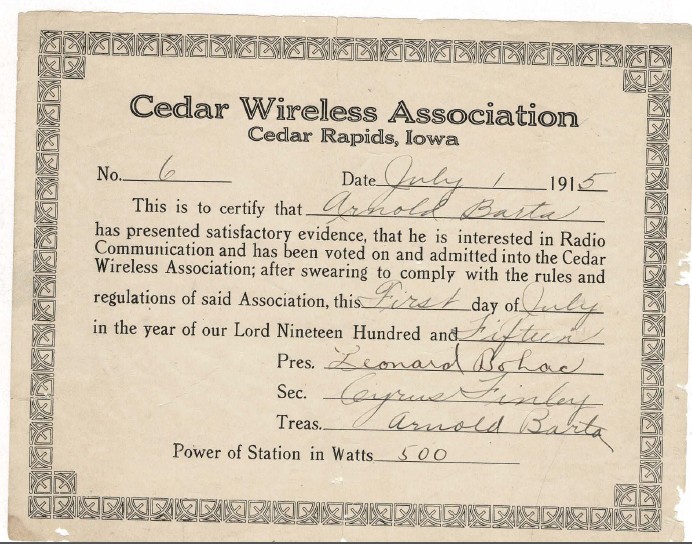 Cedar Wireless Association
Cedar Rapids, Iowa
No. 6 Date July 1 1915
This is to certify that Arnold Barta
has presented satisfactory evidence, that he is interested in Radio
Communication and has been voted on and admitted into the Cedar
Wireless Association; after swearing to comply with the rules and
regulations of said Association, this First day of July
in the year of our Lord Nineteen Hundred and Fifteen
Pres. Leonard Bohac
Sec. Cyrus Finley
Treas. Arnold Barta
Power of Station in Watts 500